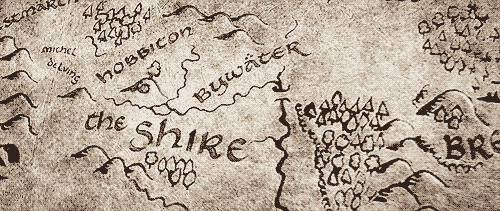 michel
delving
hobbiton
Bywater
the Shire
BRE